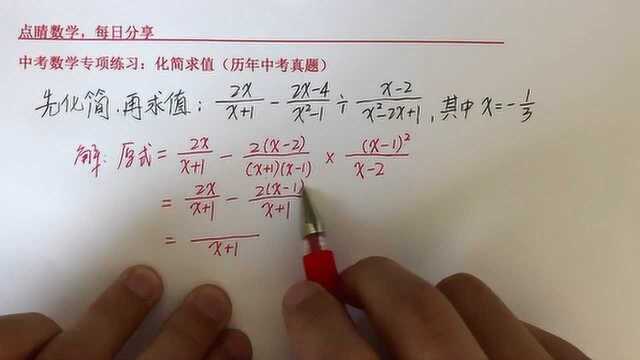 点睛数学，每日分享
中考数学专项练习：化简求值（历年中考真题）
先化简，再求值：2x/(x+1) - (2x-4)/(x²-1) ÷ (x-2)/(x²-2x+1)，其中 x=-1/3
解：原式 = 2x/(x+1) - 2(x-2)/((x+1)(x-1)) × (x-1)²/(x-2)
= 2x/(x+1) - 2(x-1)/(x+1)
= /(x+1)